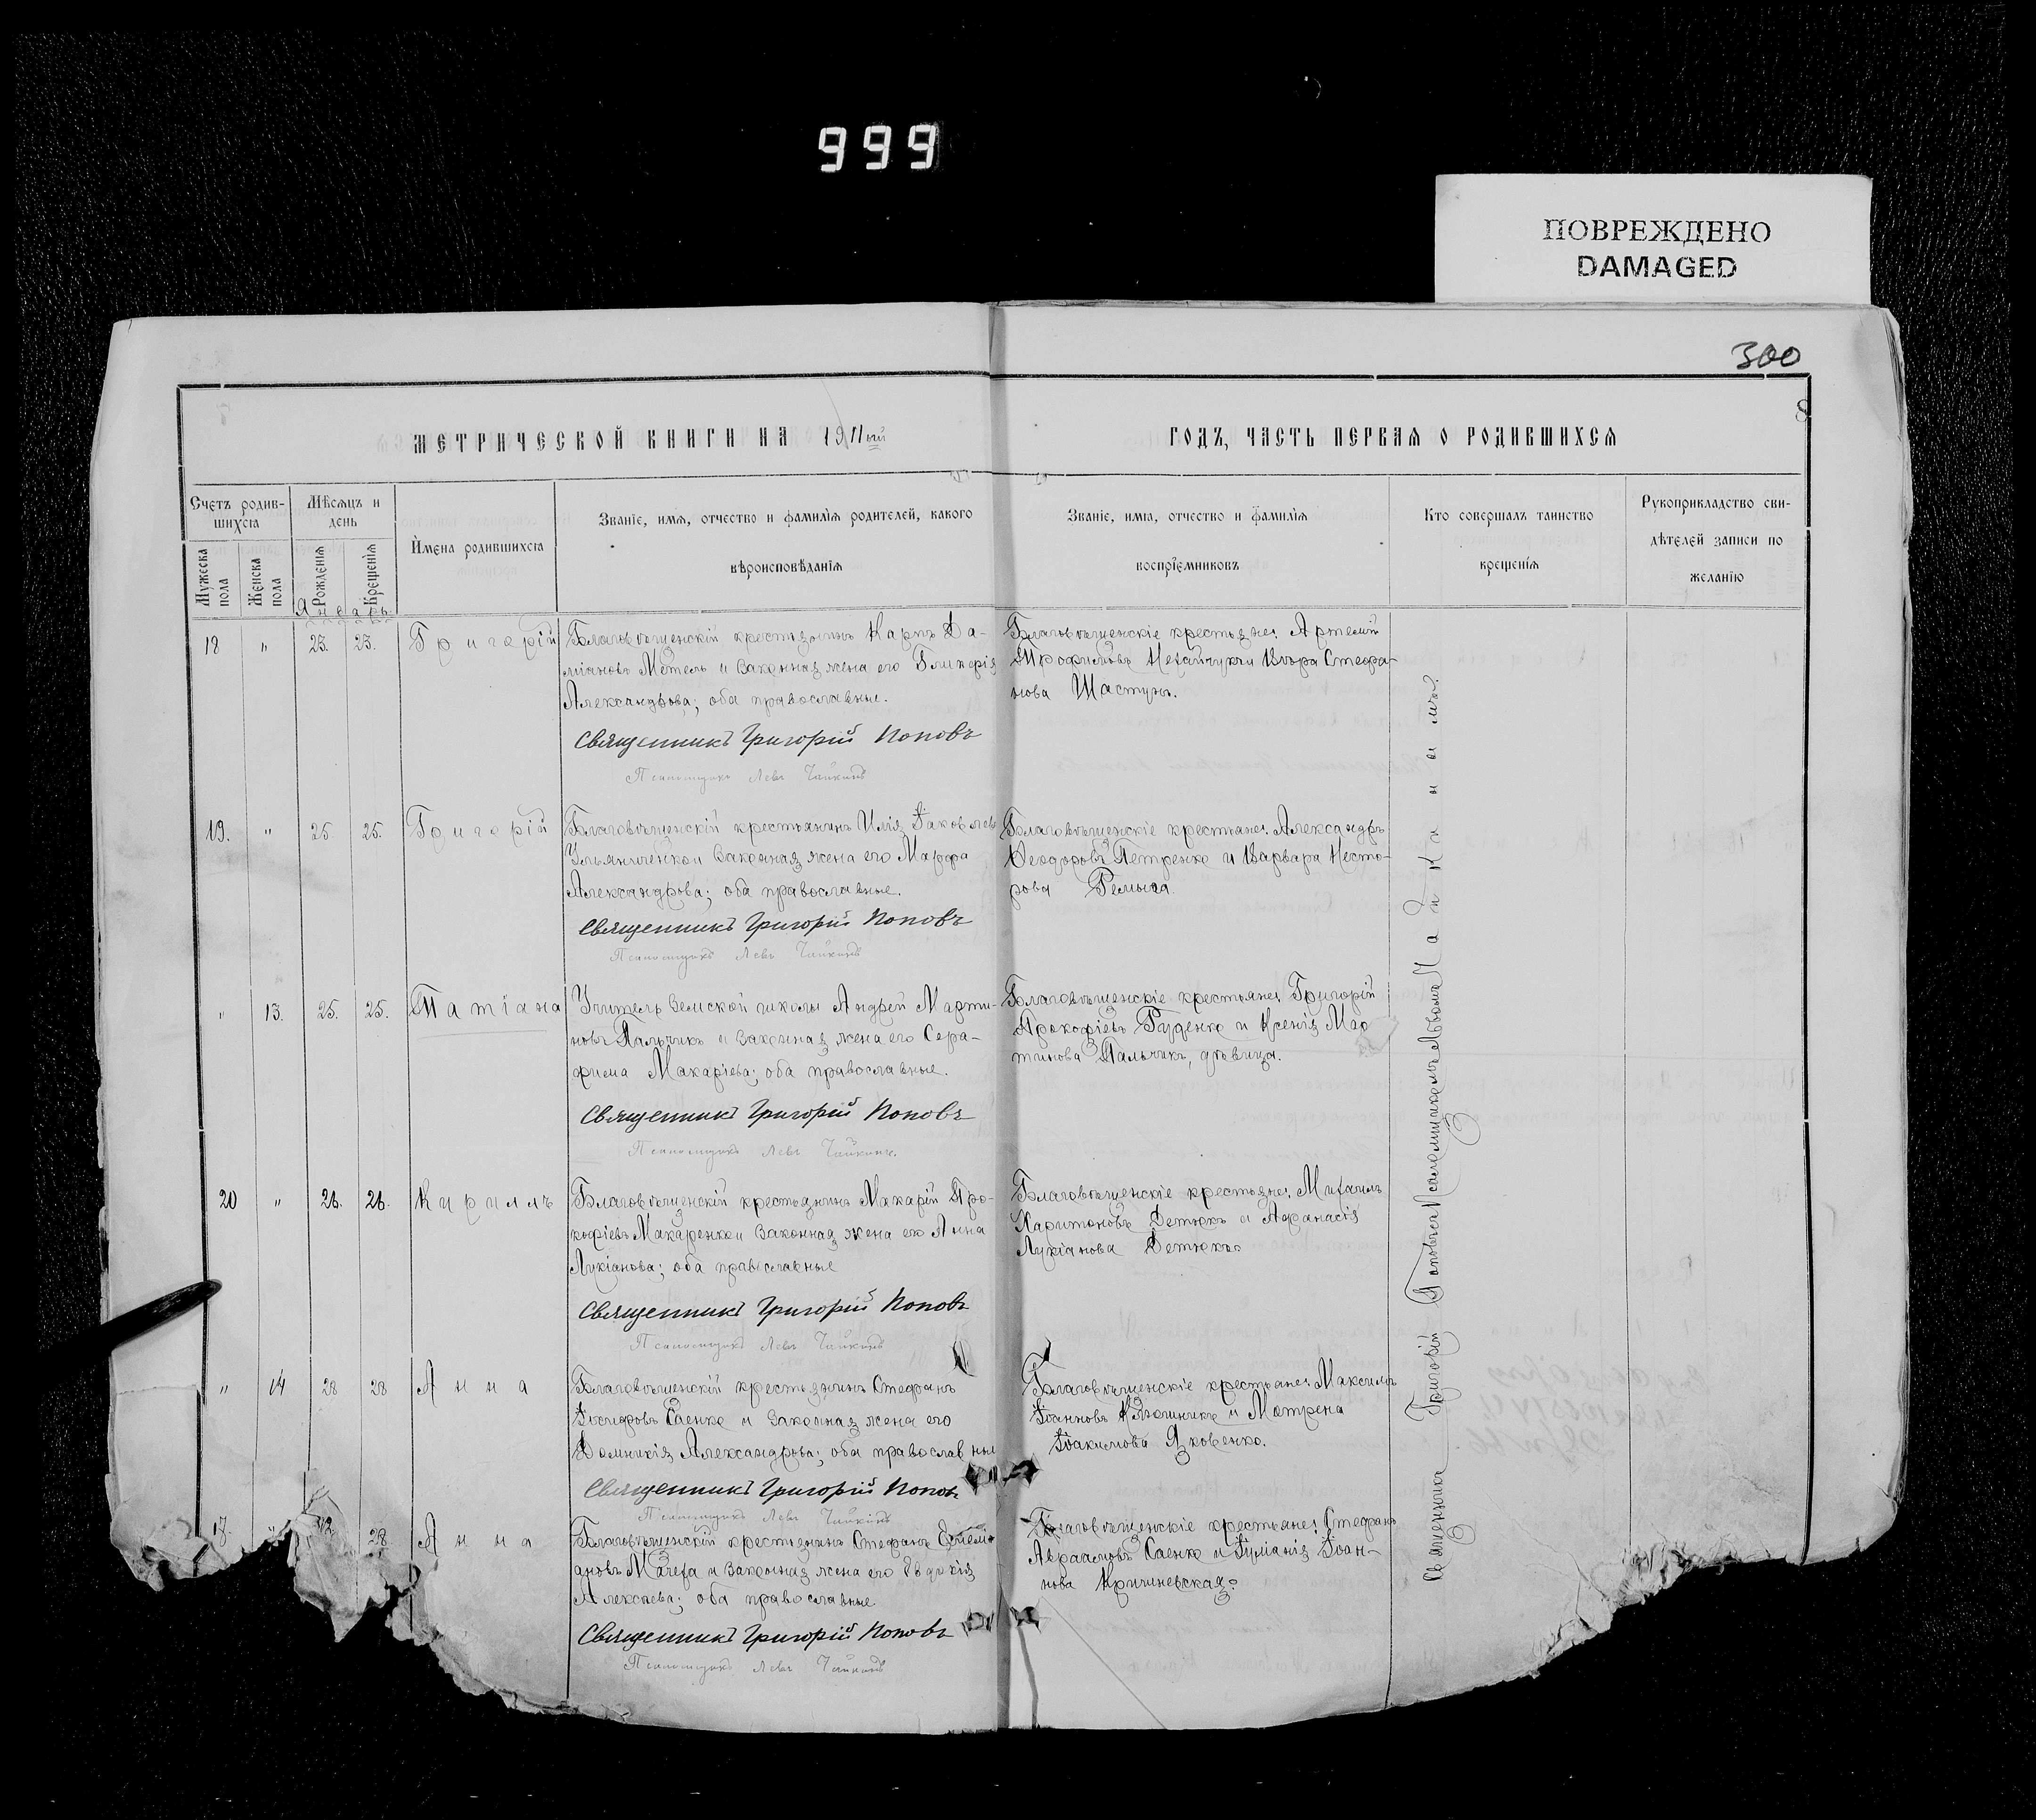 999
ПОВРЕЖДЕНО
DAMAGED
300
8
МЕТРИЧЕСКОЙ КНИГИ НА 1911ый
ГОДЪ, ЧАСТЬ ПЕРВАЯ О РОДИВШИХСЯ
Счетъ родив-
шихся
Мѣсяцъ и
день
Мужеска
пола
Женска
пола
Рожденія
Крещенія
Имена родившихся
Званіе, имя, отчество и фамилія родителей, какого
вѣроисповѣданія
Званіе, имя, отчество и фамилія
воспріемниковъ
Кто совершалъ таинство
крещенія
Рукоприкладство сви-
дѣтелей записи по
желанію
Январь
18 " 23. 23. Григорій
Благовѣщенскій крестьянинъ Карпъ Да-
міановъ Метель и законная жена его Гликерія
Александрова; оба православные.
Священникъ Григорій Поповъ
Псаломщикъ Левъ Чайкинъ
Благовѣщенскіе крестьяне: Артемій
Трофимовъ Нехайчукъ и Вѣра Стефа-
нова Шастунъ.
19. " 25 25. Григорій
Благовѣщенскій крестьянинъ Илія Іаковлевъ
Ульянченко и законная жена его Марфа
Александрова; оба православные.
Священникъ Григорій Поповъ
Псаломщикъ Левъ Чайкинъ
Благовѣщенскіе крестьяне: Александръ
Феодоровъ Петренко и Варвара Несто-
рова
" 13. 25. 25. Татіана
Учитель Земской школы Андрей Марти-
новъ Пальчикъ и законная жена его Сера-
фима Макаріева; оба православные.
Священникъ Григорій Поповъ
Псаломщикъ Левъ Чайкинъ.
Благовѣщенскіе крестьяне: Григорій
Прокофіевъ Руденко и Ксенія Мар
тинова Пальчикъ, дѣвица.
20 " 26. 26. Кириллъ
Благовѣщенскій крестьянинъ Макарій Про-
кофіевъ Макаренко и законная жена его Анна
Лукіанова; оба православные
Священникъ Григорій Поповъ
Псаломщикъ Левъ Чайкинъ
Благовѣщенскіе крестьяне: Михаилъ
Харитоновъ Детюкъ и Афанасія
Лукіанова Детюкъ.
" 14 28 28 Анна
Благовѣщенскій крестьянинъ Стефанъ
Іосифовъ Саенко и законная жена его
Домникія Александрова; оба православные
Священникъ Григорій Поповъ
Псаломщикъ Левъ Чайкинъ
Благовѣщенскіе крестьяне: Максимъ
Іоанновъ Ключникъ и Матрена
Іоакимова Яковенко.
28 Анна
Благовѣщенскій крестьянинъ Стефанъ
ановъ и законная жена его Евдокія
Алексѣева; оба православные
Священникъ Григорій Поповъ
Псаломщикъ Левъ Чайкинъ
Благовѣщенскіе крестьяне: Стефанъ
Авраамовъ Саенко и Іуліанія Іоан-
нова Кричневская.
Священника Григорій Поповъ съ Псаломщикомъ Львомъ Чайкинымъ.